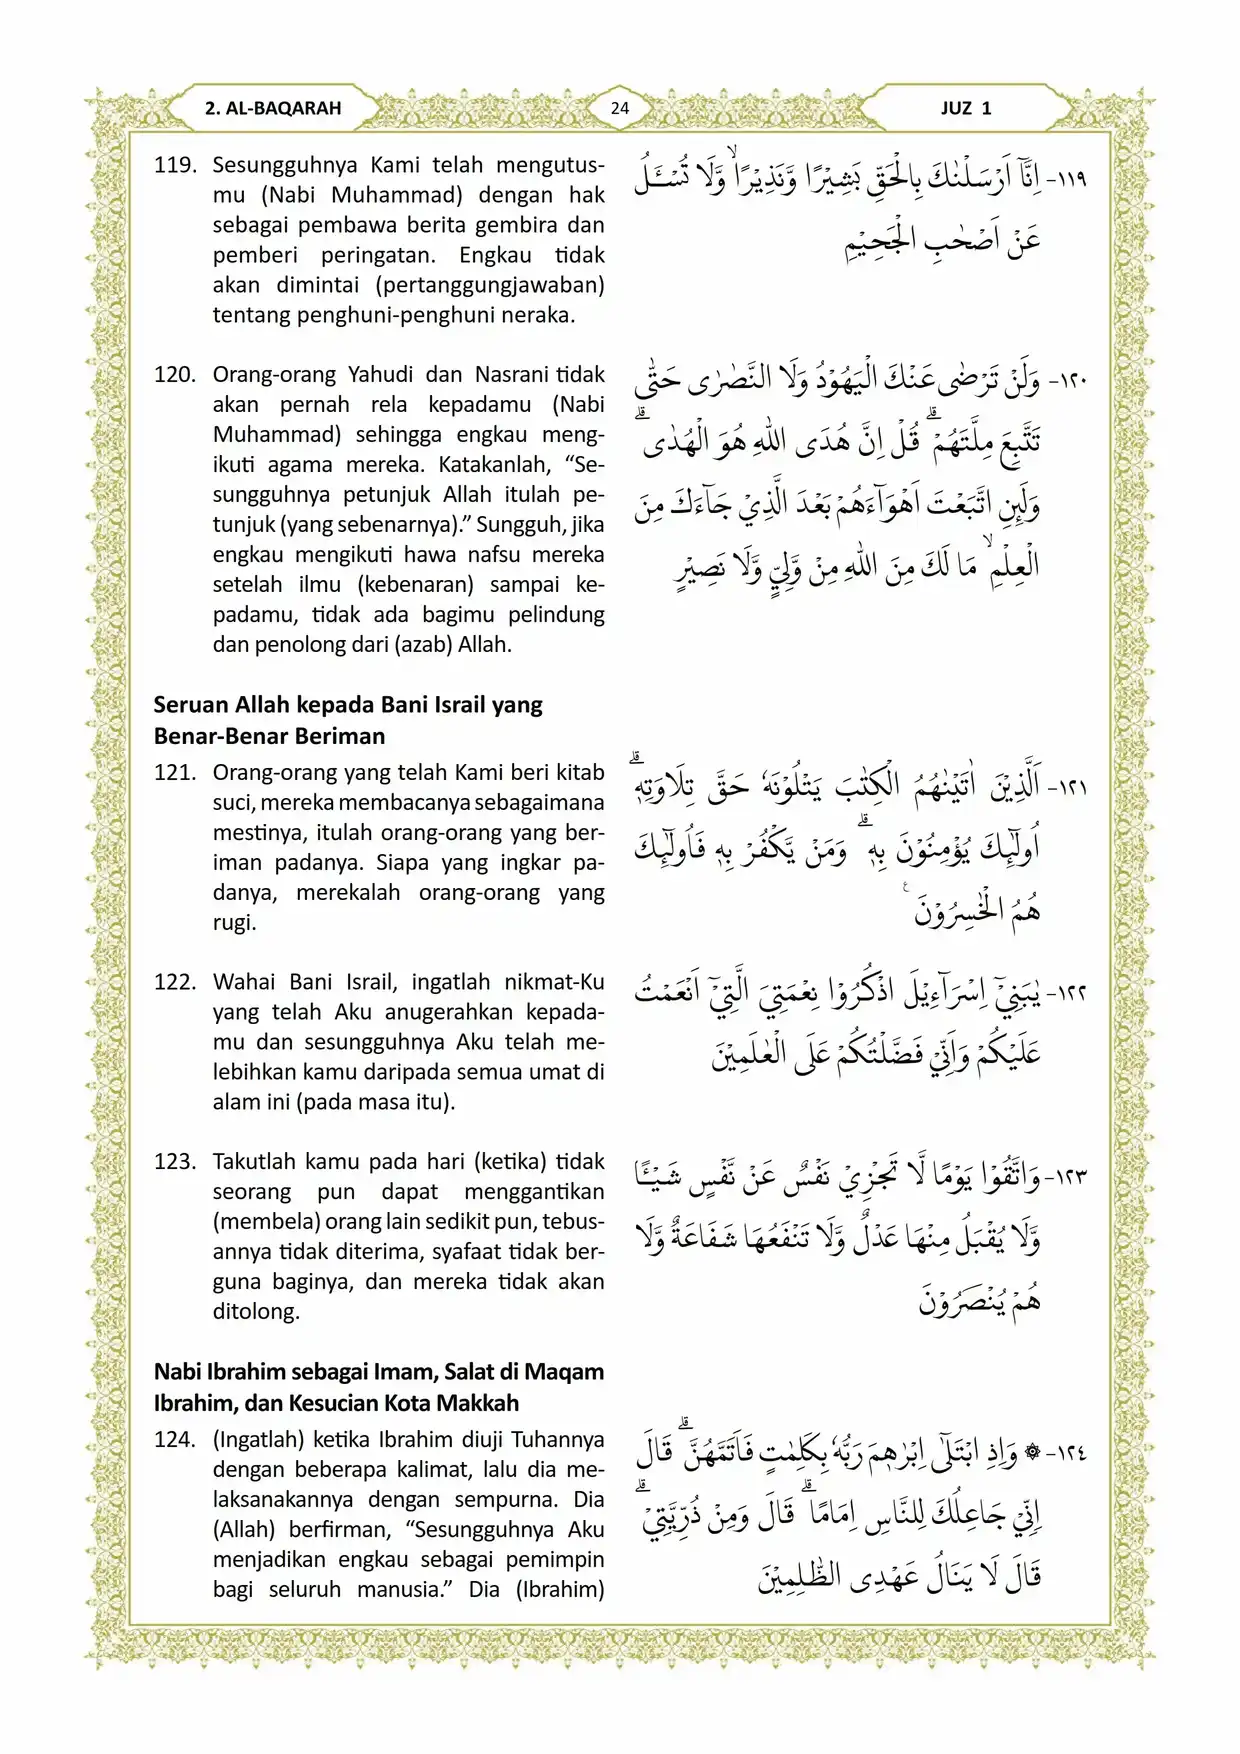 2. AL-BAQARAH
24
JUZ 1
119. Sesungguhnya Kami telah mengutus-
mu (Nabi Muhammad) dengan hak
sebagai pembawa berita gembira dan
pemberi peringatan. Engkau tidak
akan dimintai (pertanggungjawaban)
tentang penghuni-penghuni neraka.
١١٩- اِنَّآ اَرْسَلْنٰكَ بِالْحَقِّ بَشِيْرًا وَّنَذِيْرًاۙ وَّلَا تُسْـَٔلُ
عَنْ اَصْحٰبِ الْجَحِيْمِ
120. Orang-orang Yahudi dan Nasrani tidak
akan pernah rela kepadamu (Nabi
Muhammad) sehingga engkau meng-
ikuti agama mereka. Katakanlah, “Se-
sungguhnya petunjuk Allah itulah pe-
tunjuk (yang sebenarnya).” Sungguh, jika
engkau mengikuti hawa nafsu mereka
setelah ilmu (kebenaran) sampai ke-
padamu, tidak ada bagimu pelindung
dan penolong dari (azab) Allah.
١٢٠- وَلَنْ تَرْضٰى عَنْكَ الْيَهُوْدُ وَلَا النَّصٰرٰى حَتّٰى
تَتَّبِعَ مِلَّتَهُمْۗ قُلْ اِنَّ هُدَى اللّٰهِ هُوَ الْهُدٰىۗ
وَلَىِٕنِ اتَّبَعْتَ اَهْوَاۤءَهُمْ بَعْدَ الَّذِيْ جَاۤءَكَ مِنَ
الْعِلْمِۙ مَا لَكَ مِنَ اللّٰهِ مِنْ وَّلِيٍّ وَّلَا نَصِيْرٍ
Seruan Allah kepada Bani Israil yang
Benar-Benar Beriman
121. Orang-orang yang telah Kami beri kitab
suci, mereka membacanya sebagaimana
mestinya, itulah orang-orang yang ber-
iman padanya. Siapa yang ingkar pa-
danya, merekalah orang-orang yang
rugi.
١٢١- اَلَّذِيْنَ اٰتَيْنٰهُمُ الْكِتٰبَ يَتْلُوْنَهٗ حَقَّ تِلَاوَتِهٖۗ
اُولٰۤىِٕكَ يُؤْمِنُوْنَ بِهٖۗ وَمَنْ يَّكْفُرْ بِهٖ فَاُولٰۤىِٕكَ
هُمُ الْخٰسِرُوْنَ ࣖ
122. Wahai Bani Israil, ingatlah nikmat-Ku
yang telah Aku anugerahkan kepada-
mu dan sesungguhnya Aku telah me-
lebihkan kamu daripada semua umat di
alam ini (pada masa itu).
١٢٢- يٰبَنِيْٓ اِسْرَاۤءِيْلَ اذْكُرُوْا نِعْمَتِيَ الَّتِيْٓ اَنْعَمْتُ
عَلَيْكُمْ وَاَنِّيْ فَضَّلْتُكُمْ عَلَى الْعٰلَمِيْنَ
123. Takutlah kamu pada hari (ketika) tidak
seorang pun dapat menggantikan
(membela) orang lain sedikit pun, tebus-
annya tidak diterima, syafaat tidak ber-
guna baginya, dan mereka tidak akan
ditolong.
١٢٣- وَاتَّقُوْا يَوْمًا لَّا تَجْزِيْ نَفْسٌ عَنْ نَّفْسٍ شَيْـًٔا
وَّلَا يُقْبَلُ مِنْهَا عَدْلٌ وَّلَا تَنْفَعُهَا شَفَاعَةٌ وَّلَا
هُمْ يُنْصَرُوْنَ
Nabi Ibrahim sebagai Imam, Salat di Maqam
Ibrahim, dan Kesucian Kota Makkah
124. (Ingatlah) ketika Ibrahim diuji Tuhannya
dengan beberapa kalimat, lalu dia me-
laksanakannya dengan sempurna. Dia
(Allah) berfirman, “Sesungguhnya Aku
menjadikan engkau sebagai pemimpin
bagi seluruh manusia.” Dia (Ibrahim)
١٢٤- ۞ وَاِذِ ابْتَلٰٓى اِبْرٰهٖمَ رَبُّهٗ بِكَلِمٰتٍ فَاَتَمَّهُنَّۗ قَالَ
اِنِّيْ جَاعِلُكَ لِلنَّاسِ اِمَامًاۗ قَالَ وَمِنْ ذُرِّيَّتِيْۗ
قَالَ لَا يَنَالُ عَهْدِى الظّٰلِمِيْنَ